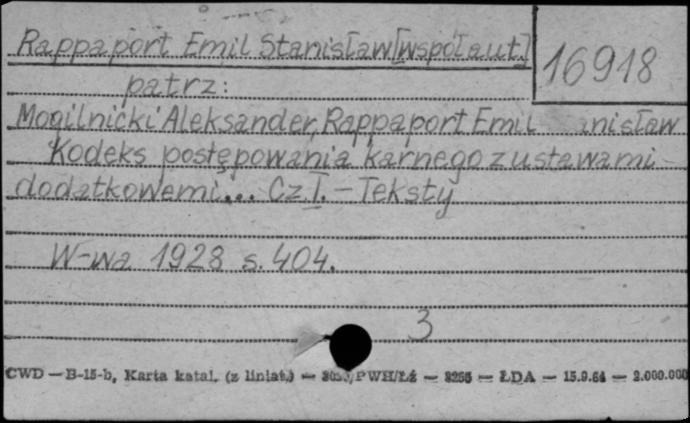 Rappaport Emil Stanisław [współaut.]
16918
patrz:
Mogilnicki Aleksander, Rappaport Emil
Kodeks postępowania karnego z ustawami
dodatkowemi... Cz. I. - Teksty
W-wa 1928 s. 404.
3
CWD — B-15-b, Karta katal. (z liniat.) — PWH/Łź — 3255 — ŁDA — 15.9.64 — 2.000.000